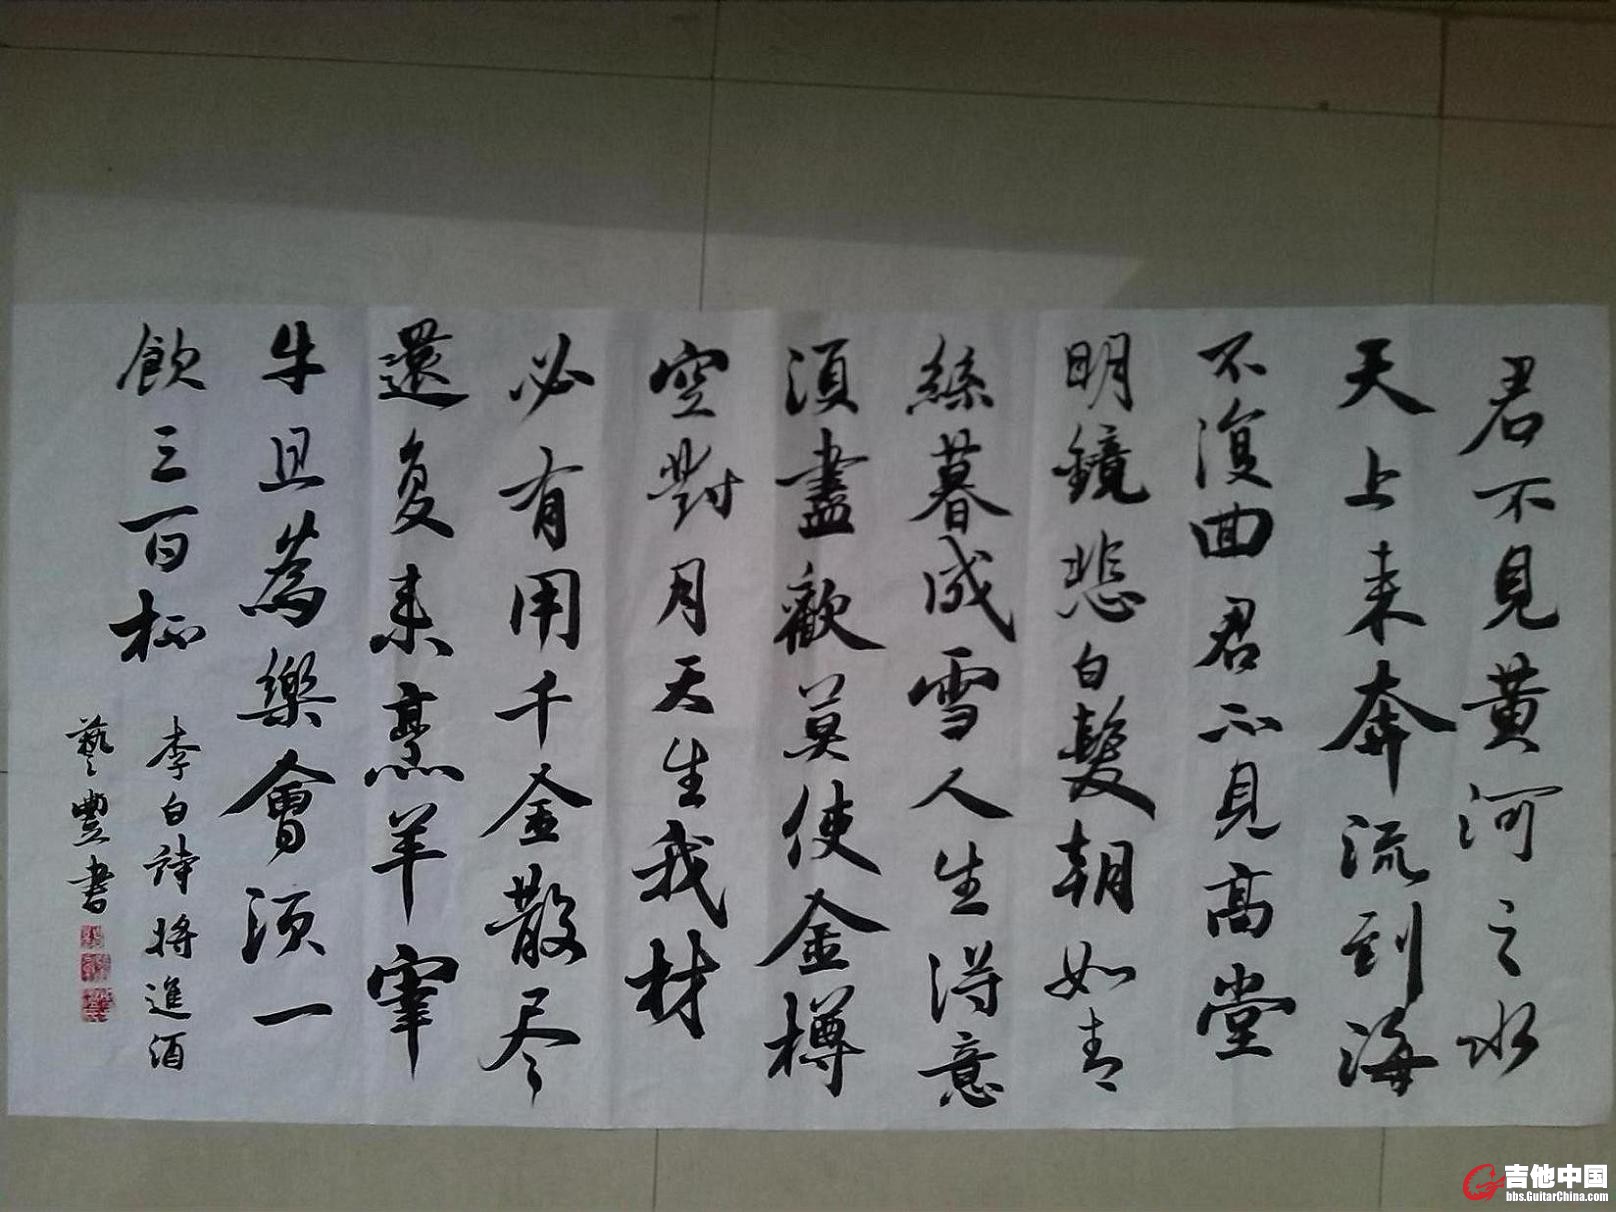 君不見黄河之水
天上来奔流到海
不復囬君不見高堂
明鏡悲白髮朝如青
絲暮成雪人生得意
須盡歡莫使金樽
空對月天生我材
必有用千金散尽
還复来烹羊宰
牛且為樂會須一
飲三百杯
李白詩将進酒
藝豐書
吉他中国
bbs.GuitarChina.com